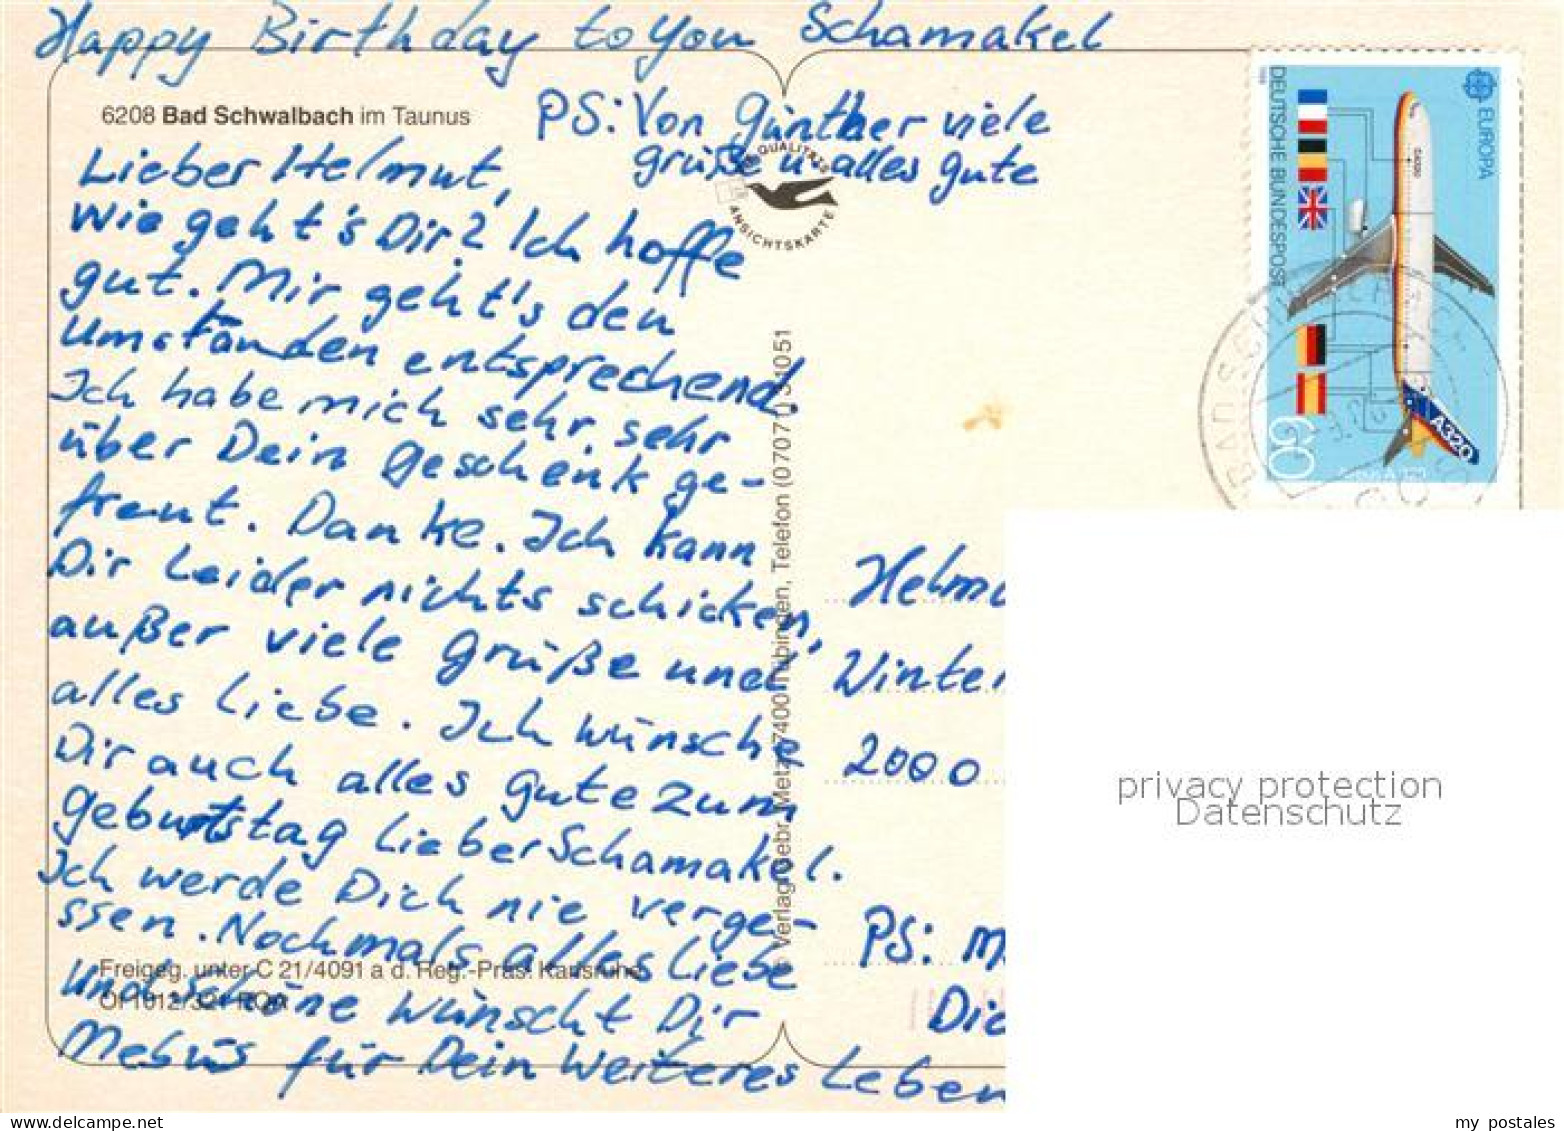 Happy Birthday to you Schamakel
6208 Bad Schwalbach im Taunus
PS: Von Günther viele
grüße u. alles gute
QUALITÄTS
ANSICHTSKARTE
Lieber Helmut,
Wie geht's Dir? Ich hoffe
gut. Mir geht's den
Umständen entsprechend.
Ich habe mich sehr, sehr
über Dein Geschenk ge-
freut. Danke. Ich kann
Dir Leider nichts schicken,
außer viele Grüße und
alles Liebe. Ich wünsche
Dir auch alles gute zum
geburtstag Lieber Schamakel.
Ich werde Dich nie verge-
ssen. Nochmals alles Liebe
und schöne wünscht Dir
Mebus für Dein Weiteres Leben
Freigeg. unter C 21/4091 a d. Reg.-Präs. Karlsruhe
© Verlag Gebr. Metz, 7400 Tübingen, Telefon (07071)
DEUTSCHE BUNDESPOST
EUROPA
A320
60
Helmu
Winter
2000
PS: M
Dic
privacy protection
Datenschutz
my postales